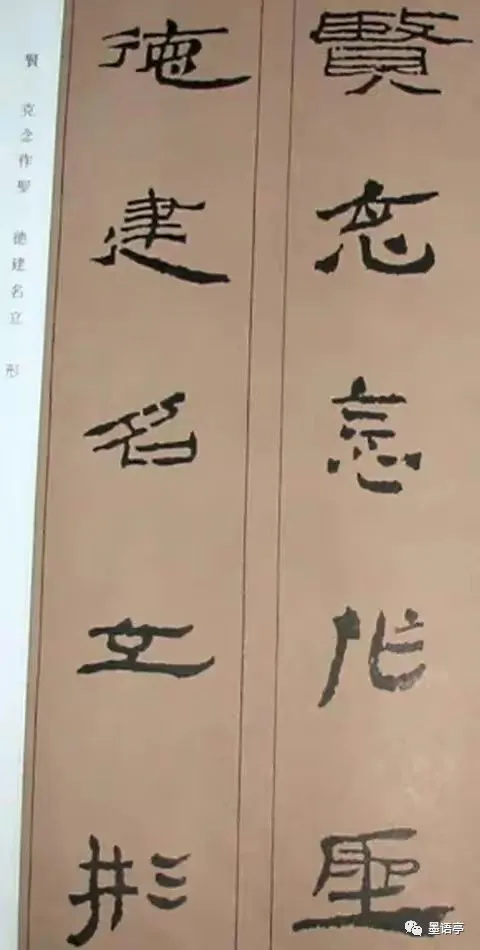 賢克念作聖
德建名立形
賢 克念作聖 德建名立 形
墨语亭